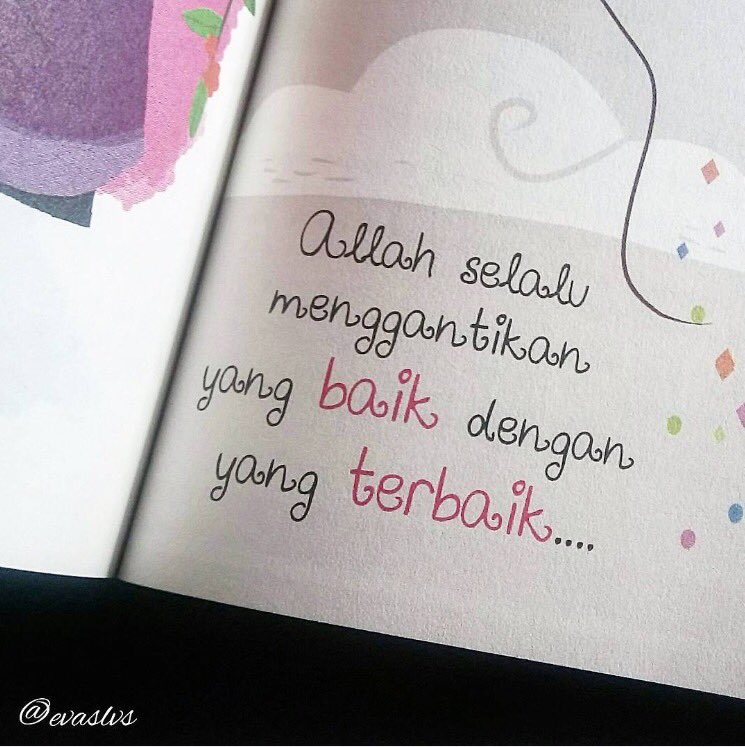 Allah selalu
menggantikan
yang baik dengan
yang terbaik....
@evaslvs